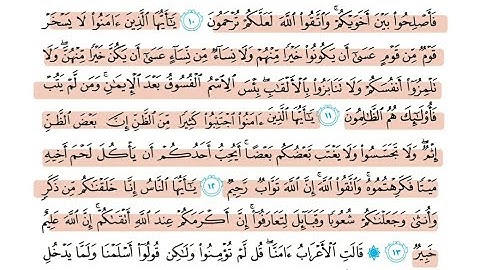 فَأَصْلِحُوا۟ بَيْنَ أَخَوَيْكُمْ ۚ وَٱتَّقُوا۟ ٱللَّهَ لَعَلَّكُمْ تُرْحَمُونَ ١٠ يَـٰٓأَيُّهَا ٱلَّذِينَ ءَامَنُوا۟ لَا يَسْخَرْ
قَوْمٌ مِّن قَوْمٍ عَسَىٰٓ أَن يَكُونُوا۟ خَيْرًا مِّنْهُمْ وَلَا نِسَآءٌ مِّن نِّسَآءٍ عَسَىٰٓ أَن يَكُنَّ خَيْرًا مِّنْهُنَّ ۖ وَلَا
تَلْمِزُوٓا۟ أَنفُسَكُمْ وَلَا تَنَابَزُوا۟ بِٱلْأَلْقَـٰبِ ۖ بِئْسَ ٱلِٱسْمُ ٱلْفُسُوقُ بَعْدَ ٱلْإِيمَـٰنِ ۚ وَمَن لَّمْ يَتُبْ
فَأُو۟لَـٰٓئِكَ هُمُ ٱلظَّـٰلِمُونَ ١١ يَـٰٓأَيُّهَا ٱلَّذِينَ ءَامَنُوا۟ ٱجْتَنِبُوا۟ كَثِيرًا مِّنَ ٱلظَّنِّ إِنَّ بَعْضَ ٱلظَّنِّ
إِثْمٌ ۖ وَلَا تَجَسَّسُوا۟ وَلَا يَغْتَب بَّعْضُكُم بَعْضًا ۚ أَيُحِبُّ أَحَدُكُمْ أَن يَأْكُلَ لَحْمَ أَخِيهِ
مَيْتًا فَكَرِهْتُمُوهُ ۚ وَٱتَّقُوا۟ ٱللَّهَ ۚ إِنَّ ٱللَّهَ تَوَّابٌ رَّحِيمٌ ١٢ يَـٰٓأَيُّهَا ٱلنَّاسُ إِنَّا خَلَقْنَـٰكُم مِّن ذَكَرٍ
وَأُنثَىٰ وَجَعَلْنَـٰكُمْ شُعُوبًا وَقَبَآئِلَ لِتَعَارَفُوٓا۟ ۚ إِنَّ أَكْرَمَكُمْ عِندَ ٱللَّهِ أَتْقَىٰكُمْ ۚ إِنَّ ٱللَّهَ عَلِيمٌ
خَبِيرٌ ١٣ ۞ قَالَتِ ٱلْأَعْرَابُ ءَامَنَّا ۖ قُل لَّمْ تُؤْمِنُوا۟ وَلَـٰكِن قُولُوٓا۟ أَسْلَمْنَا وَلَمَّا يَدْخُلِ